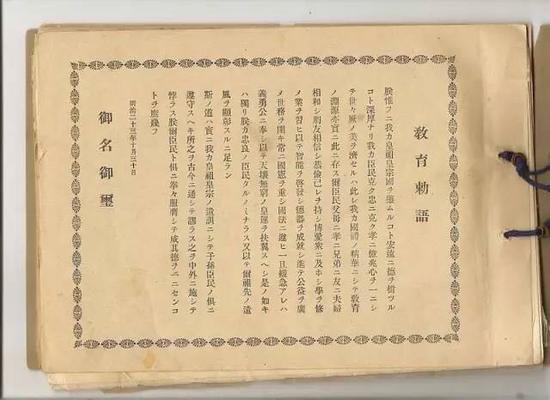 教育勅語
朕惟フニ我カ皇祖皇宗國ヲ肇ムルコト宏遠ニ德ヲ樹ツル
コト深厚ナリ我カ臣民克ク忠ニ克ク孝ニ億兆心ヲ一ニシ
テ世々厥ノ美ヲ濟セルハ此レ我カ國體ノ精華ニシテ教育
ノ淵源亦實ニ此ニ存ス爾臣民父母ニ孝ニ兄弟ニ友ニ夫婦
相和シ朋友相信シ恭儉己レヲ持シ博愛衆ニ及ホシ學ヲ修
メ業ヲ習ヒ以テ智能ヲ啓發シ德器ヲ成就シ進テ公益ヲ廣
メ世務ヲ開キ常ニ國憲ヲ重シ國法ニ遵ヒ一旦緩急アレハ
義勇公ニ奉シ以テ天壤無窮ノ皇運ヲ扶翼スヘシ是ノ如キ
ハ獨リ朕カ忠良ノ臣民タルノミナラス又以テ爾祖先ノ遺
風ヲ顯彰スルニ足ラン
斯ノ道ハ實ニ我カ皇祖皇宗ノ遺訓ニシテ子孫臣民ノ俱ニ
遵守スヘキ所之ヲ古今ニ通シテ謬ラス之ヲ中外ニ施シテ
悖ラス朕爾臣民ト俱ニ拳々服膺シテ咸其德ヲ一ニセンコ
トヲ庶幾フ
明治二十三年十月三十日
御名御璽